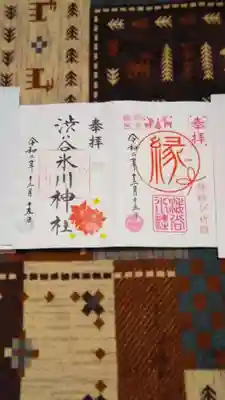 奉拝
縁
令和二年十二月十五日
渋谷氷川神社
奉拝
渋谷氷川神社
令和二年十二月十五日